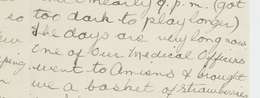 nearly 9 p.m. (got
so too dark to play longer)
The days are very long now
One of Our Medical Officers
went to Amiens & brought
we a basket of strawberries